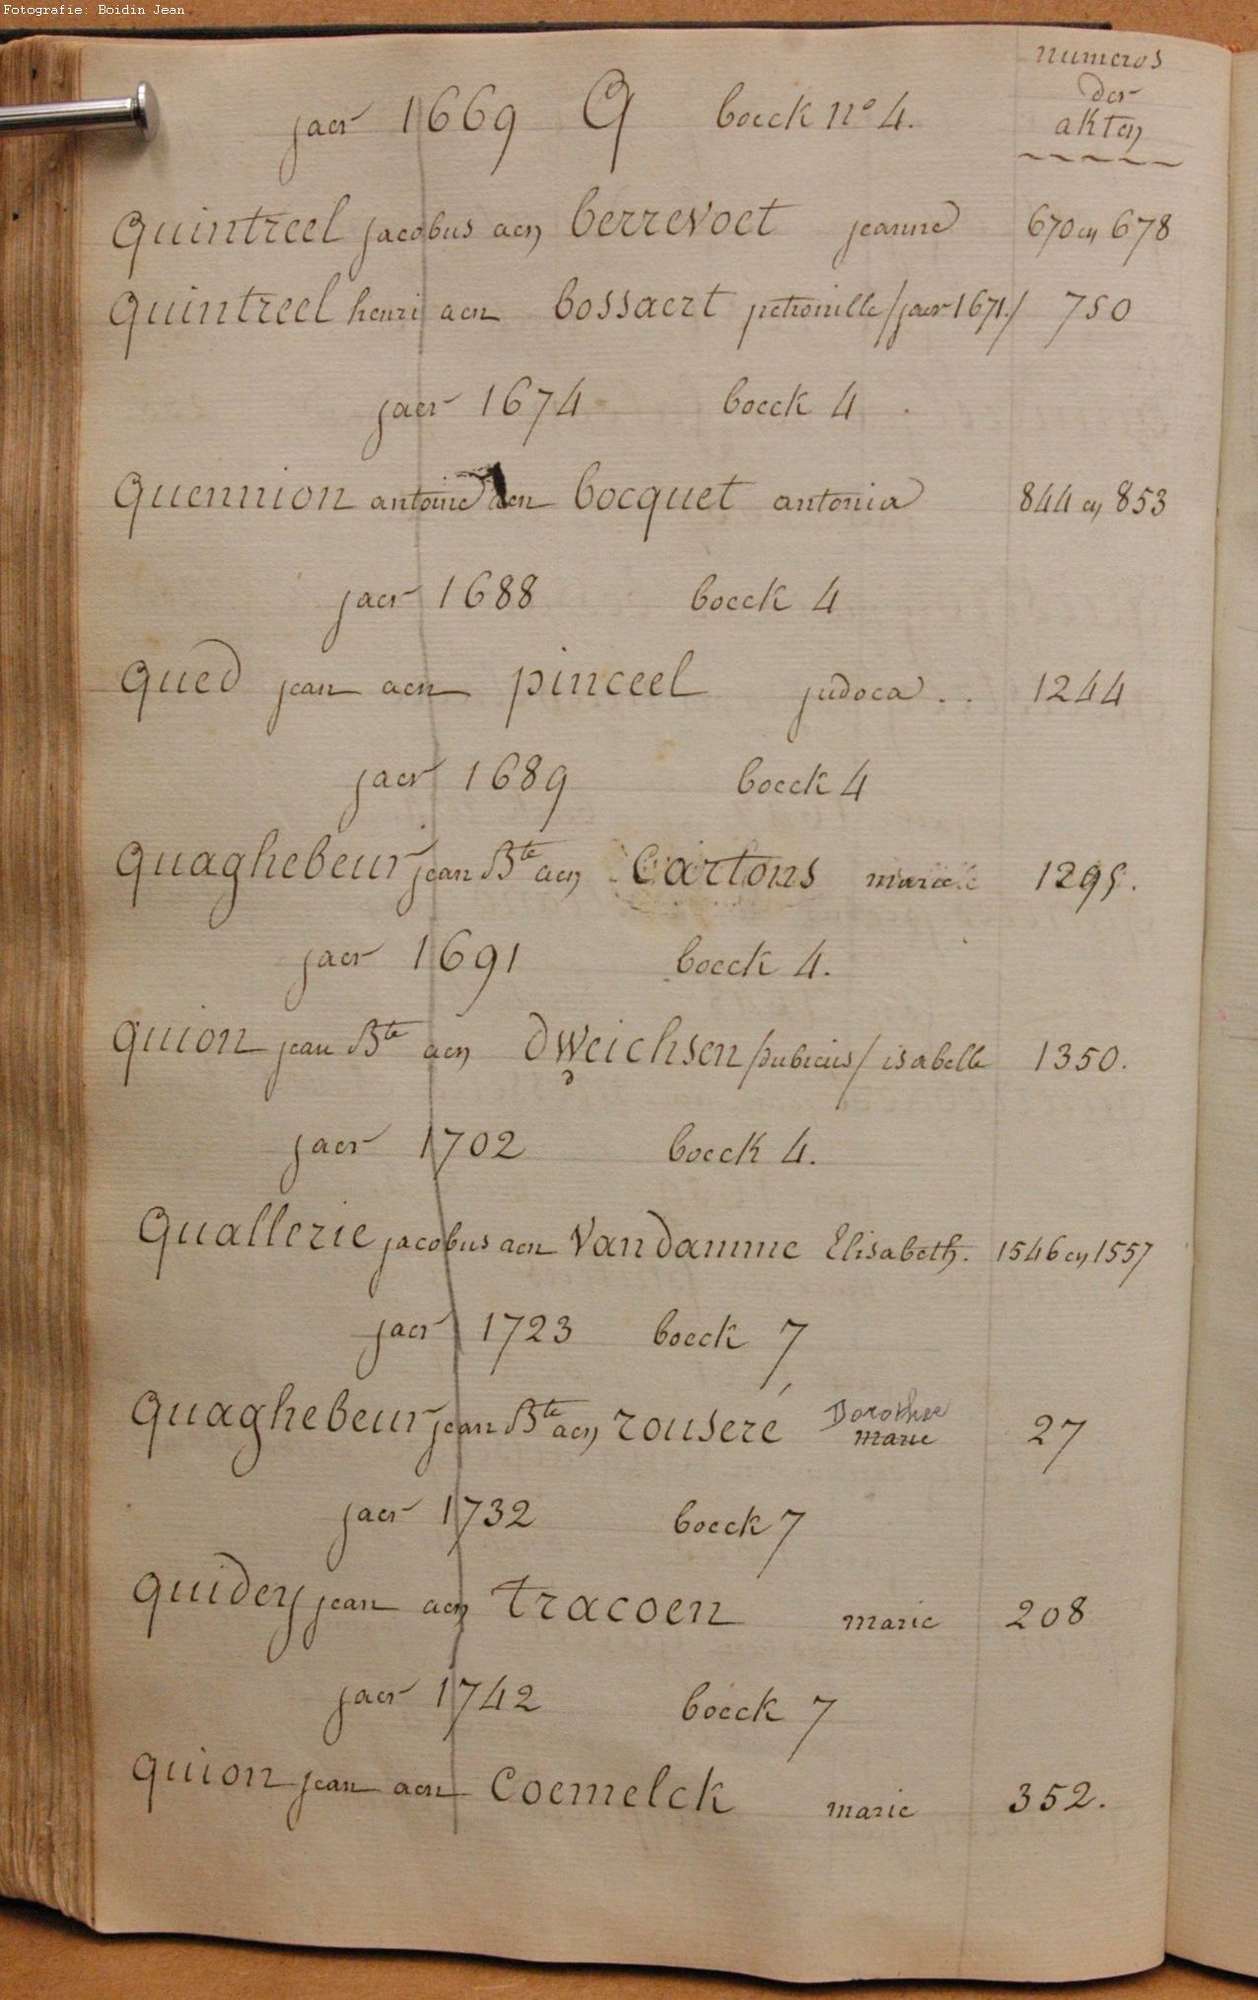 Fotografie: Boidin Jean
numeros
der
akten
jaer 1669 Q boeck n° 4.
quintreel jacobus aen berrevoet jeanne 670 en 678
quintreel henri aen bossaert petronille /jaer 1671./ 750
jaer 1674 boeck 4
quennion antoine aen bocquet antonia 844 en 853
jaer 1688 boeck 4
qued jean aen pinceel judoca . . 1244
jaer 1689 boeck 4
quaghebeur jean Bte aen Cartons 1295.
jaer 1691 boeck 4.
quion jean Bte aen dweichsen isabelle 1350.
jaer 1702 boeck 4.
quallerie jacobus aen Vandamme Elisabeth. 1546 en 1557
jaer 1723 boeck 7
quaghebeur jean Bte aen rouseré Dorothee marie 27
jaer 1732 boeck 7
quidey jean aen tracoen marie 208
jaer 1742 boeck 7
quion jean aen Coemelck marie 352.